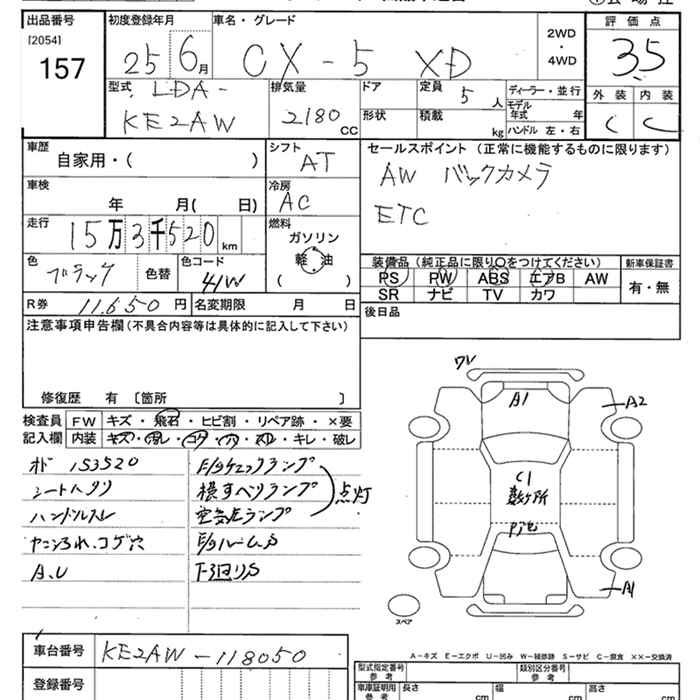 出品番号
[2054]
157
初度登録年月
25 6月
車名・グレード
CX-5 XD
2WD
・
4WD
評価点
3.5
外装 内装
C C
型式
LDA-
KE2AW
排気量
2180 CC
ドア
形状
定員 5 人
積載 kg
ディーラー・並行
モデル年式 年
ハンドル 左・右
車歴
自家用・( )
シフト
AT
車検
年 月( 日)
冷房
AC
走行
15万3千520km
燃料
ガソリン
軽油
( )
色
ブラック
色替
色コード
41W
R券 11,650円
名変期限 月 日
セールスポイント (正常に機能するものに限ります)
AW バックカメラ
ETC
装備品 (純正品に限り○をつけてください)
PS PW ABS エアB AW
SR ナビ TV カワ
新車保証書
有・無
後日品
注意事項申告欄(不具合内容等は具体的に記入して下さい)
修復歴 有 〔箇所 〕
検査員
記入欄
FW キズ・飛石・ヒビ割・リペア跡・×要
内装 キズ・汚レ・コゲ・穴・スレ・キレ・破レ
オド 153520
シートヘタリ
ハンドルスレ
コゲ穴
A.U
E/gチェックランプ
横すべりランプ
空気圧ランプ
点灯
E/gルームS
下回りS
ワレ
A1
A2
C1
数ヶ所
A1
スペア
A-キズ E-エクボ U-凹み W-補修跡 S-サビ C-腐食 ××-交換済
車台番号
KE2AW-118050
登録番号
型式指定番号
参考
類別区分番号
参考
車庫証明用
参考
長さ cm
幅 cm
高さ cm